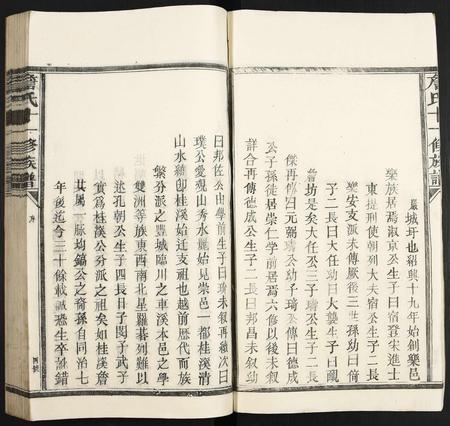 詹氏十一修族譜
嚴城圩也紹興十九年始創樂邑
樂族居焉淑京公生子曰宿登宋進士
東提刑使朝列大夫宿公生子二長
樂安支派未傳厥後三世孫幼曰倚
子二長曰大任幼曰大 子曰
詹坊是矣大任公三子 公生子二長
傑再傳曰元弼 幼子 公傳曰德成
公子孫徒居崇仁學前居焉六修以後未叙
詳合再傳德成公生子二長曰邦昌未叙幼
曰邦佐公由學前生子曰 未叙再續次曰
璞公愛觀山秀水麗始見崇邑一都桂溪清
山水繞卽桂溪始迁支祖也越前歷代而族
繁分派之 豐城臨川之車溪本邑之學
雙洲等族東西南北星羅碁列難以
述孔朝公生子四長曰子閔子武子
實爲桂溪公分派之祖矣如桂溪詹
其屬一脈均鎬公之裔孫自同治七
年後迄今三十餘載誠恐生卒 錯
詹氏十一修族譜
序
四號